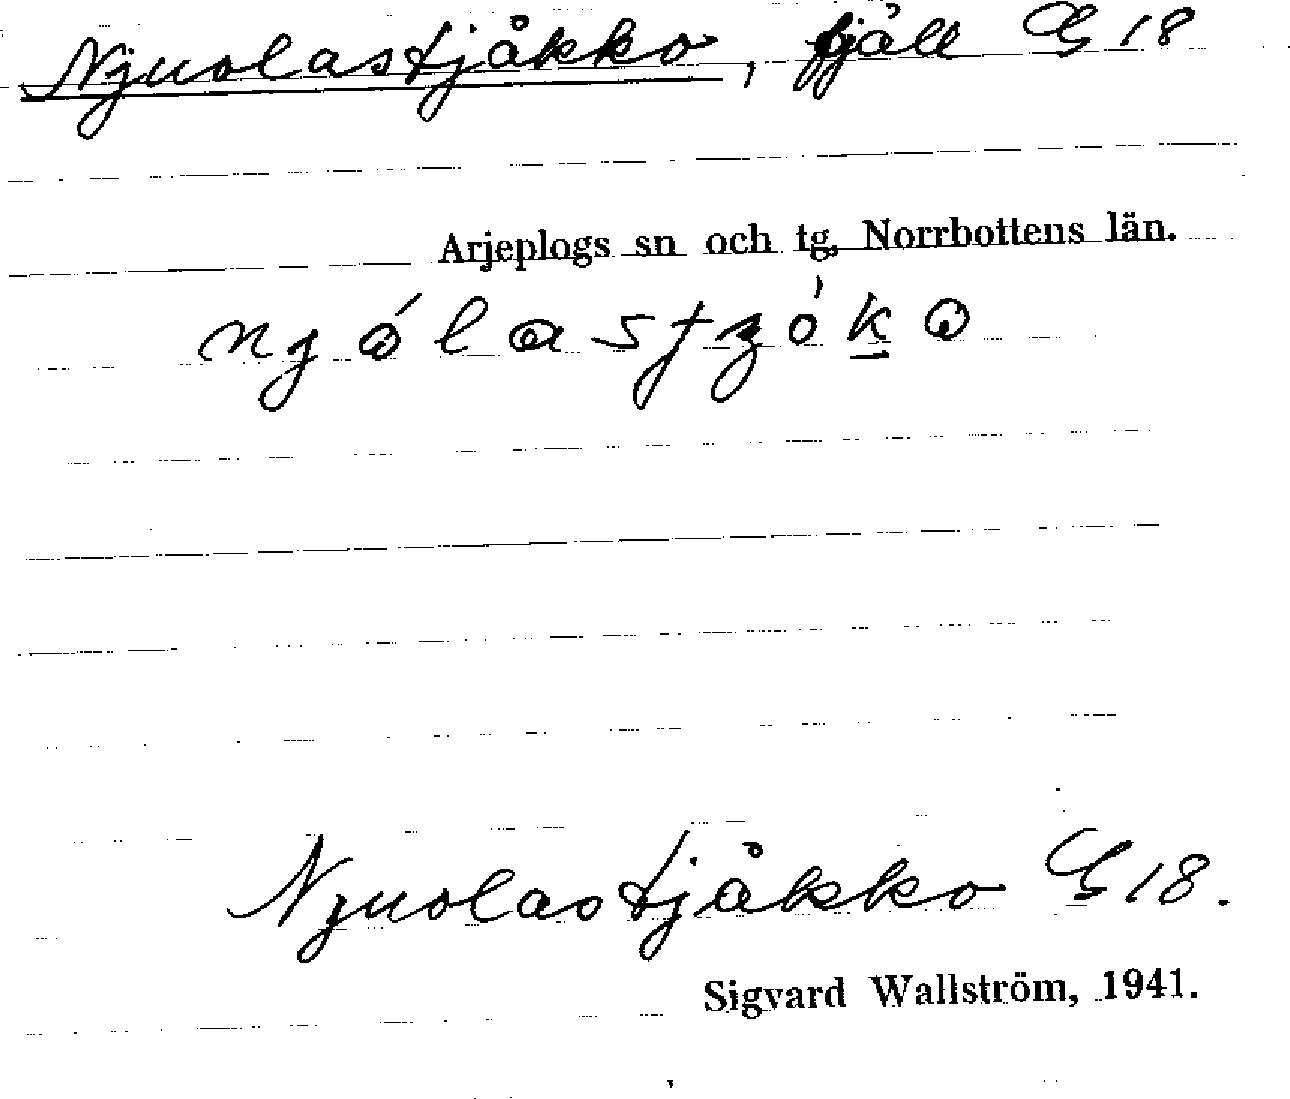 Njuolastjåkko, fjäll G 18
Arjeplogs sn och tg, Norrbottens län.
Njuolastjåkko G 18.
Sigvard Wallström, 1941.